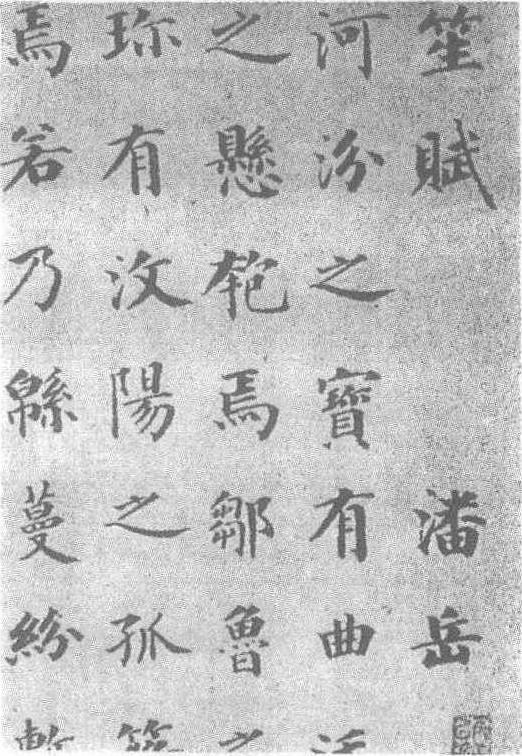 笙賦 潘岳
河汾之寶有曲
之懸匏焉鄒魯之
珎有汶陽之孤
焉若乃緜蔓紛